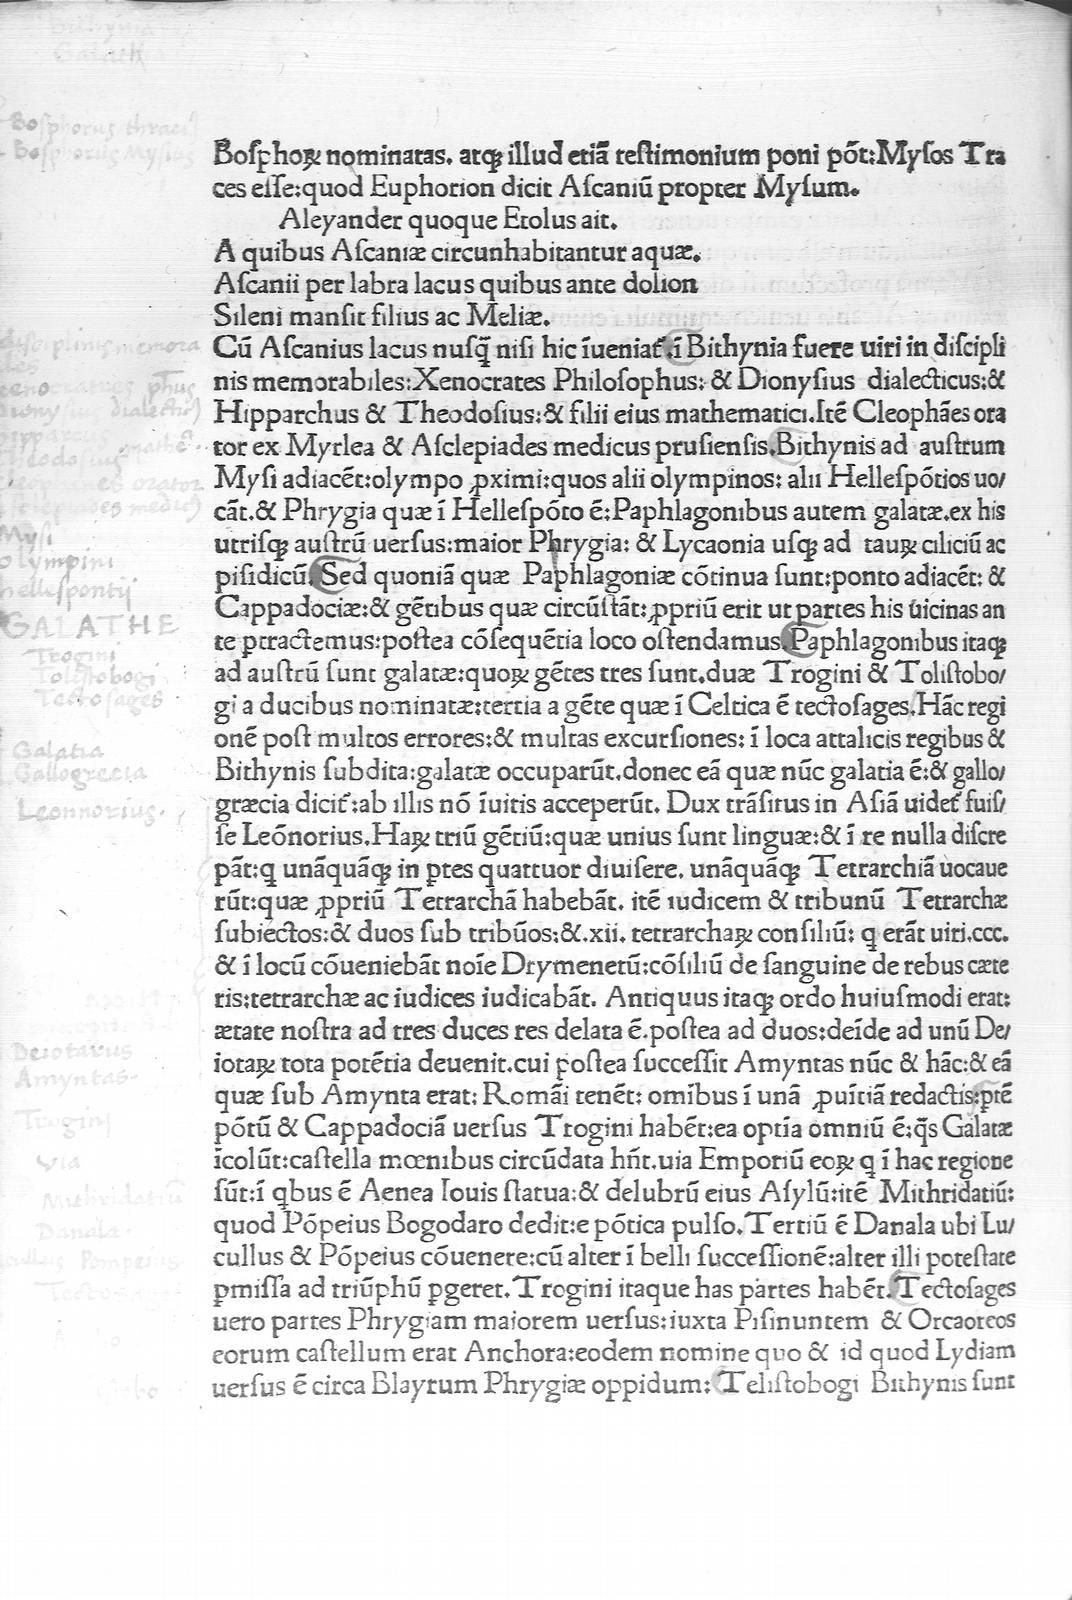 Bithynia
Galath
Bosphorus thraci
Bosphorus Mysius
Boſphoꝝ nominatas. atqꝫ illud etiā teſtimonium poni pōt:Myſos Tra
ces eſſe:quod Euphorion dicit Aſcaniū propter Myſum.
Aleyander quoque Etolus ait.
A quibus Aſcaniæ circunhabitantur aquæ.
Aſcanii per labra lacus quibus ante dolion
Sileni manſit filius ac Meliæ.
Cū Aſcanius lacus nuſq̄ niſi hic īueniat᷑.ī Bithynia fuere uiri in diſcipli
nis memorabiles:Xenocrates Philoſophus: & Dionyſius dialecticus:&
Hipparchus & Theodoſius:& filii eius mathematici.Itē Cleophāes ora
tor ex Myrlea & Aſclepiades medicus pruſienſis.Bithynis ad auſtrum
Myſi adiacēt:olympo ꝓximi:quos alii olympinos: alii Helleſpōtios uo/
cāt.& Phrygia quæ ī Helleſpōto ē:Paphlagonibus autem galatæ.ex his
utriſqꝫ auſtrū uerſus:maior Phrygia: & Lycaonia uſqꝫ ad tauꝝ ciliciū ac
piſidicū.Sed quoniā quæ Paphlagoniæ cōtinua ſunt:ponto adiacēt: &
Cappadociæ:& gētibus quæ circūſtāt:ꝓpriū erit ut partes his uicinas an
te ptractemus:poſtea cōſequētia loco oſtendamus.Paphlagonibus itaqꝫ
ad auſtrū ſunt galatæ:quoꝝ gētes tres ſunt.duæ Trogini & Toliſtobo/
gi a ducibus nominatæ:tertia a gēte quæ ī Celtica ē tectoſages.Hāc regi
onē poſt multos errores:& multas excurſiones: ī loca attalicis regibus &
Bithynis ſubdita:galatæ occuparūt.donec eā quæ nūc galatia ē:& gallo/
græcia dicit᷑:ab illis nō īuitis acceperūt. Dux trāſitus in Aſiā uidet᷑ fuiſ/
ſe Leōnorius.Haꝝ triū gētiū:quæ unius ſunt linguæ:& ī re nulla diſcre
pāt:q unāquāqꝫ in ptes quattuor diuiſere. unāquāqꝫ Tetrarchiā uocaue
rūt:quæ ꝓpriū Tetrarchā habebāt. itē iudicem & tribunū Tetrarchæ
ſubiectos:& duos ſub tribūos:&.xii. tetrarchaꝝ conſiliū: q erāt uiri.ccc.
& ī locū cōueniebāt noīe Drymenetū:cōſiliū de ſanguine de rebus cæte
ris:tetrarchæ ac iudices iudicabāt. Antiquus itaqꝫ ordo huiuſmodi erat:
ætate noſtra ad tres duces res delata ē.poſtea ad duos:deīde ad unū De/
iotaꝝ tota potētia deuenit.cui poſtea ſucceſſit Amyntas nūc & hāc:& eā
quæ ſub Amynta erat: Romāi tenēt: omībus ī unā ꝓuītiā redactis:ptē
pōtū & Cappadociā uerſus Trogini habēt:ea optīa omniū ē:q̄s Galatæ
īcolūt:caſtella mœnibus circūdata hn̄t.uia Emporiū eoꝝ q ī hac regione
ſūt:ī qbus ē Aenea Iouis ſtatua:& delubrū eius Aſylū:itē Mithridatiū:
quod Pōpeius Bogodaro dedit:e pōtica pulſo.Tertiū ē Danala ubi Lu/
cullus & Pōpeius cōuenere:cū alter ī belli ſucceſſionē:alter illi poteſtate
pmiſſa ad triūphū pgeret.Trogini itaque has partes habēt.Tectoſages
uero partes Phrygiam maiorem uerſus:iuxta Piſinuntem & Orcaoreos
eorum caſtellum erat Anchora:eodem nomine quo & id quod Lydiam
uerſus ē circa Blayrum Phrygiæ oppidum:Teliſtobogi Bithynis ſunt
Mysi
olympini
hellespontij
GALATHE
Trogini
Tolistobogi
Tectosages
Galatia
Gallogrecia
Leonnorius.
Deiotarus
Amyntas
Trogini
Via
Mithridatiū
Danala.
Pompeius
Tectosages